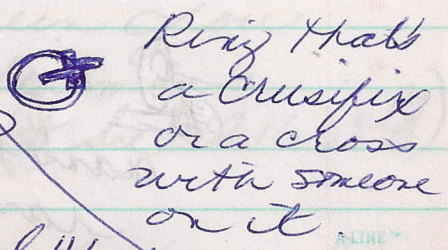 Ring that's
a Crusifix
or a cross
with someone
on it.
A-LINE™